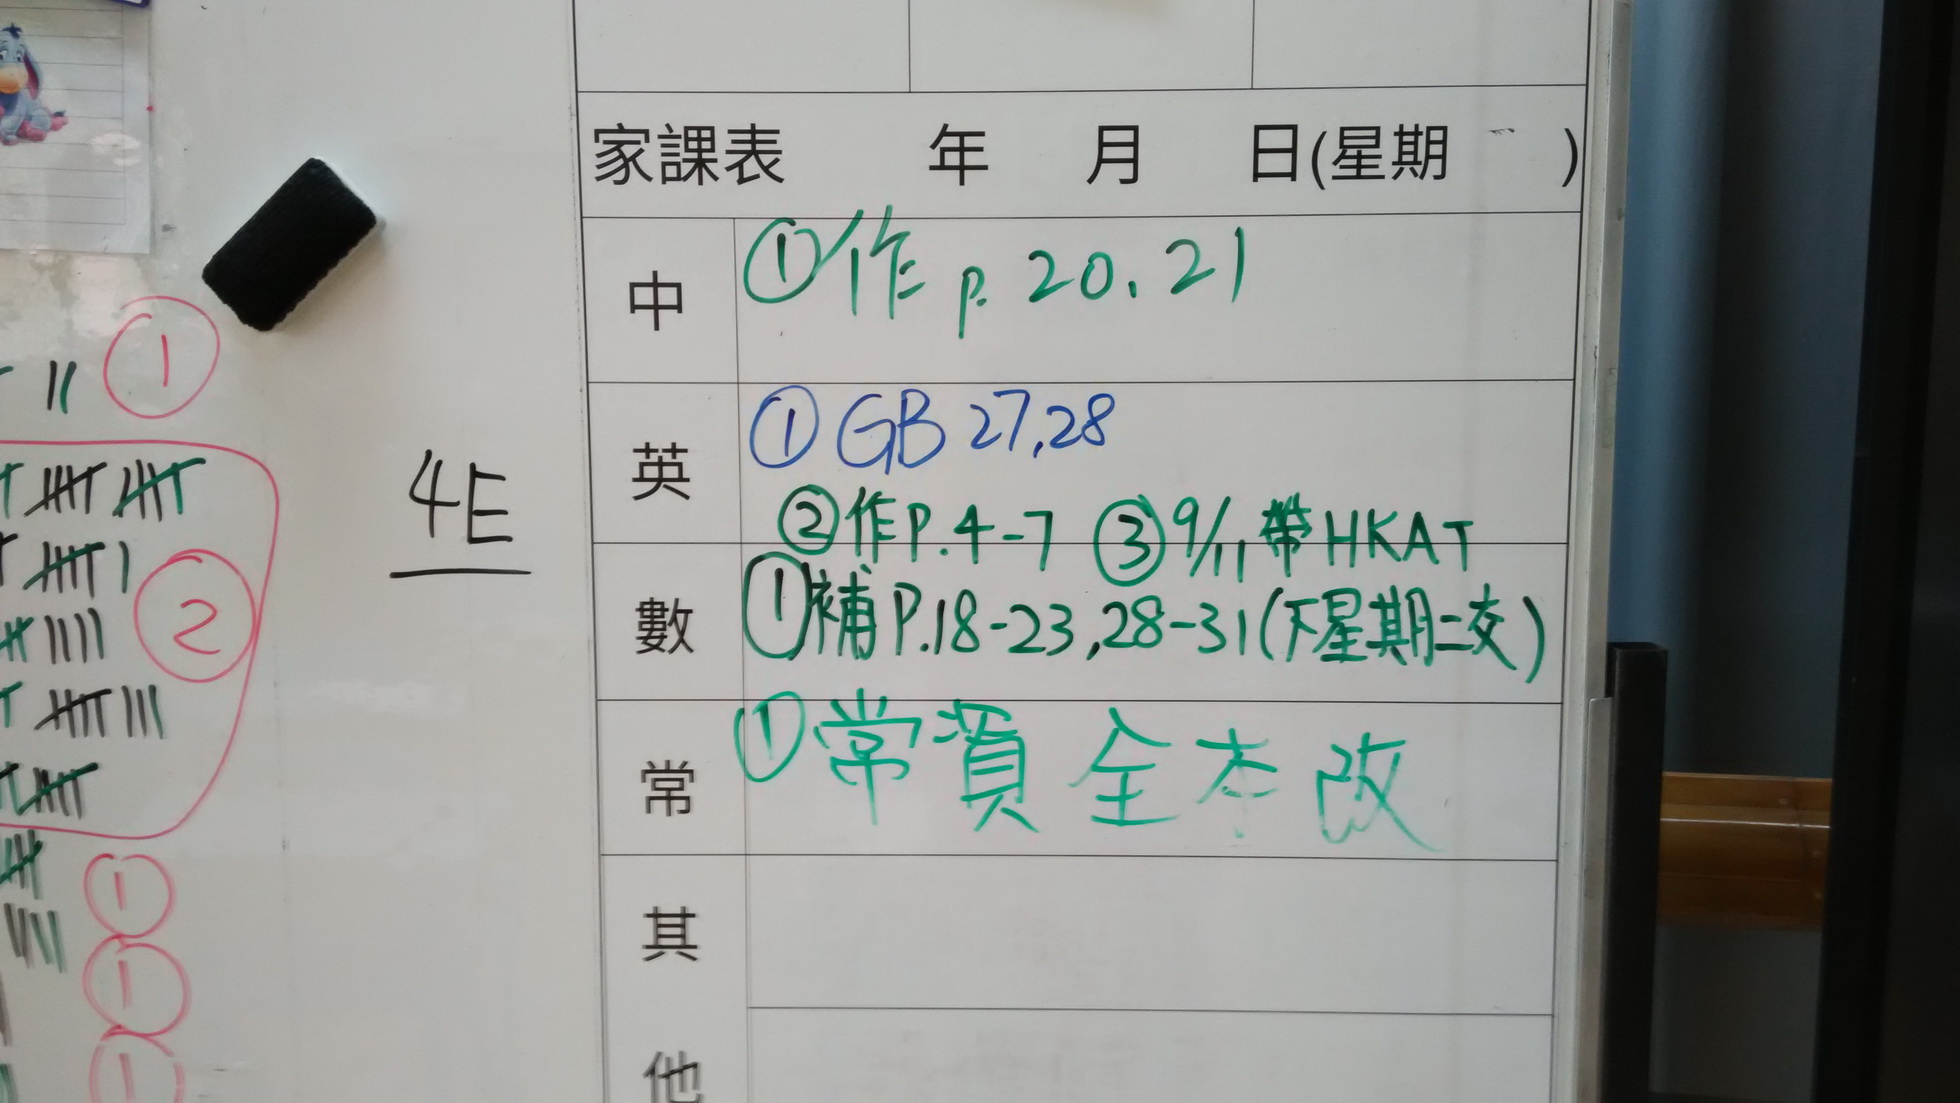 家課表 年 月 日(星期 )
中 ①作 p. 20. 21
英 ① GB 27,28
②作P.4-7 ③9/11帶HKAT
數 ①補P.18-23,28-31(下星期二交)
常 ①常 全本改
其
他
4E
①
②
①
①
①